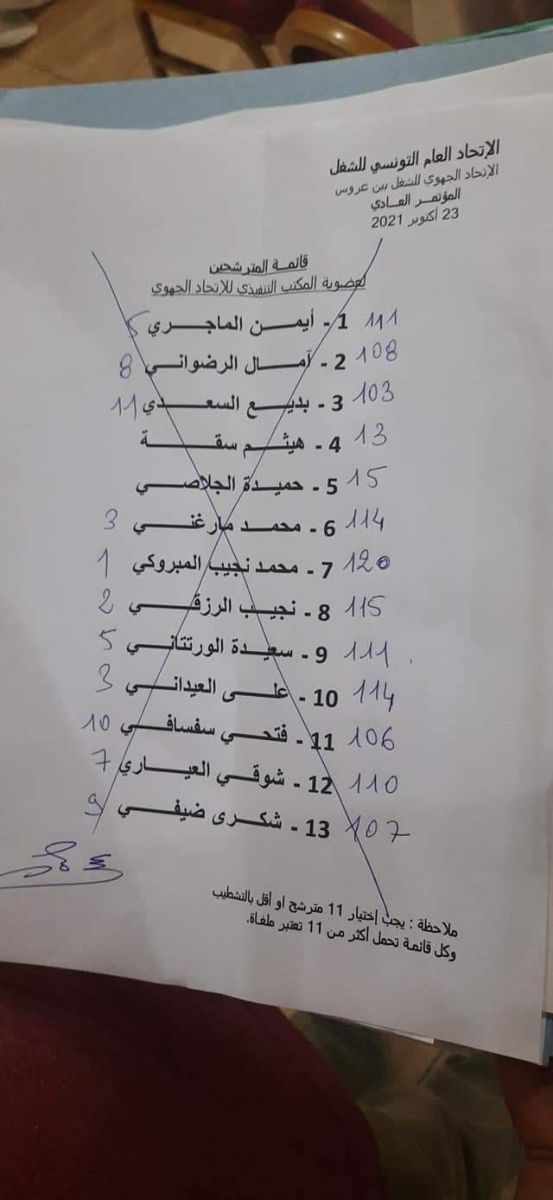 الإتحاد العام التونسي للشغل
الإتحاد الجهوي للشغل ببن عروس
المؤتمر العـادي
23 أكتوبر 2021
قائمـة المترشحين
لعضوية المكتب التنفيذي للإتحاد الجهوي
111 1 - أيمـن الماجـري 5
108 2 - آمـال الرضوانـي 8
103 3 - بديـع السعـدي 11
13 4 - هيثـم سقـة
15 5 - حميـدة الجلاصـي
114 6 - محمـد مارغنـي 3
120 7 - محمد نجيب المبروكي 1
115 8 - نجيـب الرزقـي 2
111 9 - سعيـدة الورتتـاني 5
114 10 - علـى العيدانـي 3
106 11 - فتحـي سفسافـي 10
110 12 - شوقـي العيـاري 7
107 13 - شكـرى ضيفـي 9
ملاحظة : يجب إختيار 11 مترشح او أقل بالتشطيب
وكل قائمة تحمل أكثر من 11 تعتبر ملغاة.